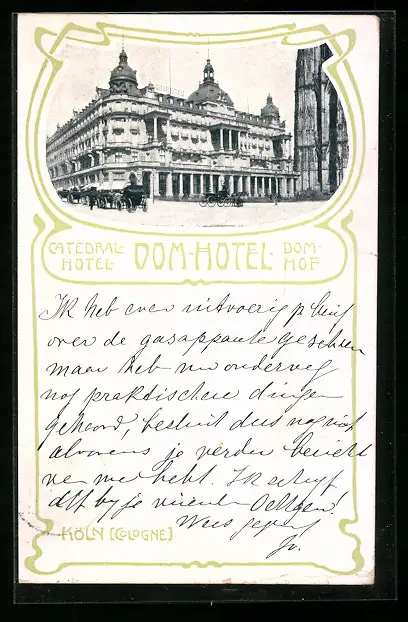 CATEDRAL-
HOTEL-
DOM-HOTEL-
DOM-
HOF
Ik heb even uitvoerig p brief
over de gasapparate geschreven
maar heb nu onderweg
nog praktischere dingen
gehoord, besluit dus nog niet
alvorens je verder bericht
van me hebt. Ik schrijf
dit by je
Wees gegroet
KÖLN [COLOGNE]